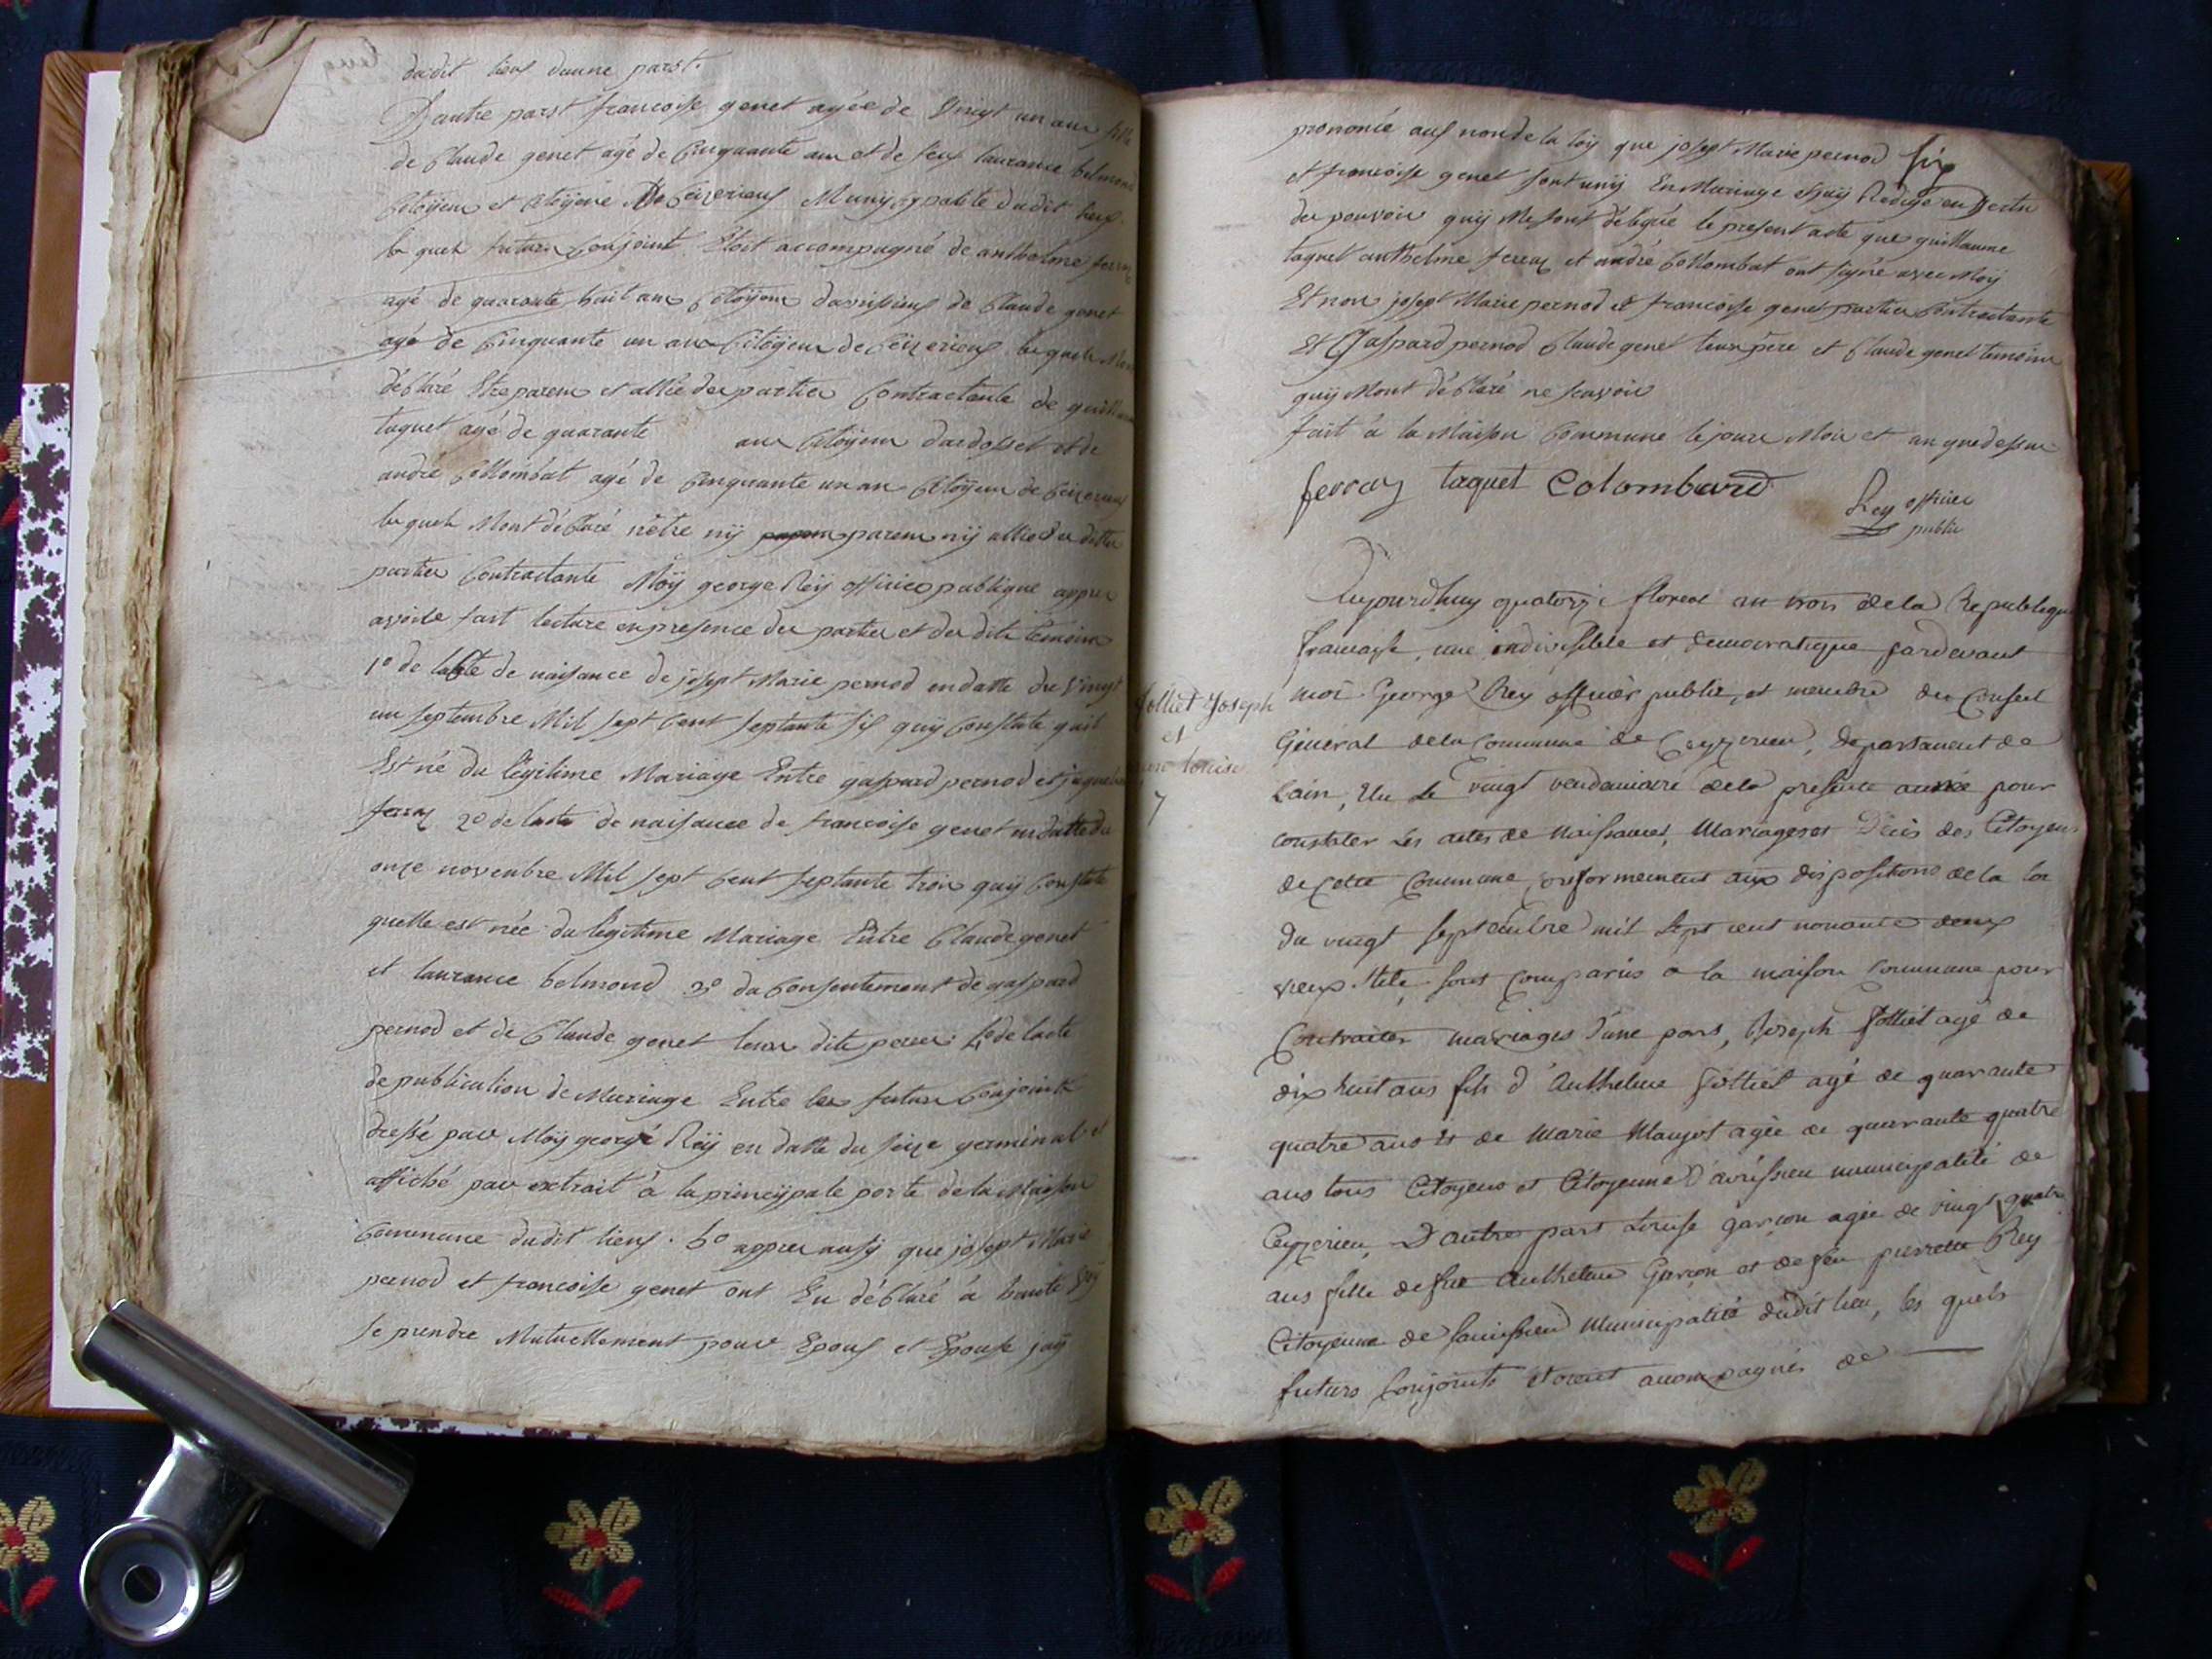 dudit lieuf daune parst.
D'autre parst francoisse genet agée de Vingt un ans fille
de Claude genet agé de Cinquante ans et de feux laurance belmond
Citoÿens et Citoÿene De Ceizerieux Municÿpalité dudit lieux.
les quels futurs Conjoint Etoit accompagné de anthelme ferraz
agé de quarante huit ans Citoÿens davrissieux de Claude genet
agé de Cinquante un ans Citoÿen de Ceizerieux les quels Mont
déClaré Etre parens et alliée des parties Contractante de guillaume
taquet agé de quarante ans Citoÿen dardosset et de
andré Collombat agé de Cinquante un an Citoÿen de Ceizerieux
les quels Mont déClaré nêtre nÿ parens nÿ alliés des dittes
parties Contractante Moÿ george Reÿ officier publique appres
avoire fait lecture en presence des parties et des dits témoins
1º de lacte de naisance de josept Marie pernod en datte du Vingt
un septembre Mil sept Cent septante six quÿ Constate quil
Est né du légitime Mariage Entre gaspard pernod et jaquel
ferraz 2º de lacte de naisance de francoisse genet en datte du
onze novenbre Mil sept Cent septante trois quÿ Constate
quelle est née du légitime Mariage Entre Claude genet
et laurance belmond 3º du Consentement de gaspard
pernod et de Claude genet leurs dits peres 4º de lacte
de publication de Mariage Entre les futurs Conjoints
dressé par Moÿ george Reÿ en datte du seize germinal et
affiché par extrait à la principale porte de la Maison
Commune dudit lieux. 5º appres ausÿ que josept Marie
pernod et francoisse genet ont Eu déClaré à haute Voÿ
se prendre Mutuellement pour Epoux et Epouse jaÿ
prononcé aux non de la loÿ que josept Marie pernod six
et francoisse genet sont unÿ En Mariage Etjaÿ Redigé en Vertu
des pouvoirs quÿ Me sont délégué le present acte que guillaume
taquet anthelme ferraz et andré Collombat ont signé avec Moÿ
Et non josept Marie pernod et francoisse genet parties Contractante
Et Gaspard pernod Claude genet leurs père et Claude genet temoins
quÿ Mont déClaré ne scavoir
fait à la Maison Commune le jours Mois et an que dessus
ferraz taquet Colombard Rey officier
public
Aujourdhuy quatorze floreal an trois de la Republique
francaise, une indivisible et democratique pardevant
Jolliet Joseph
et
louise
7
moi George Rey officier public, et membre du Conseil
Général de la Commune de Ceyzerieu, Departement de
Lain, élu le vingt vendemiaire de la presente année pour
constater les actes de Naissances, Mariages et Décès des Citoyens
de cette Commune, conformement aux dispositions de la loi
du vingt septembre mil sept cent nonante deux
vieux stile, sont comparus a la maison Commune pour
Contracter mariages d'une pars, Joseph Jolliet agé de
dix huit ans fils d'Anthelme Jolliet agé de quarante
quatre ans et de Marie Maujot agée de quarante quatre
ans tous Citoyens et Citoyenne d'avrissieu municipalité de
Ceyzerieu, D'autre part Louise Garçon agée de vingt quatre
ans fille de feu Anthelme Garçon et de feu pierrette Rey
Citoyenne de Municipalité dudit lieu, les quels
futurs Conjoints etoient accompagnés de